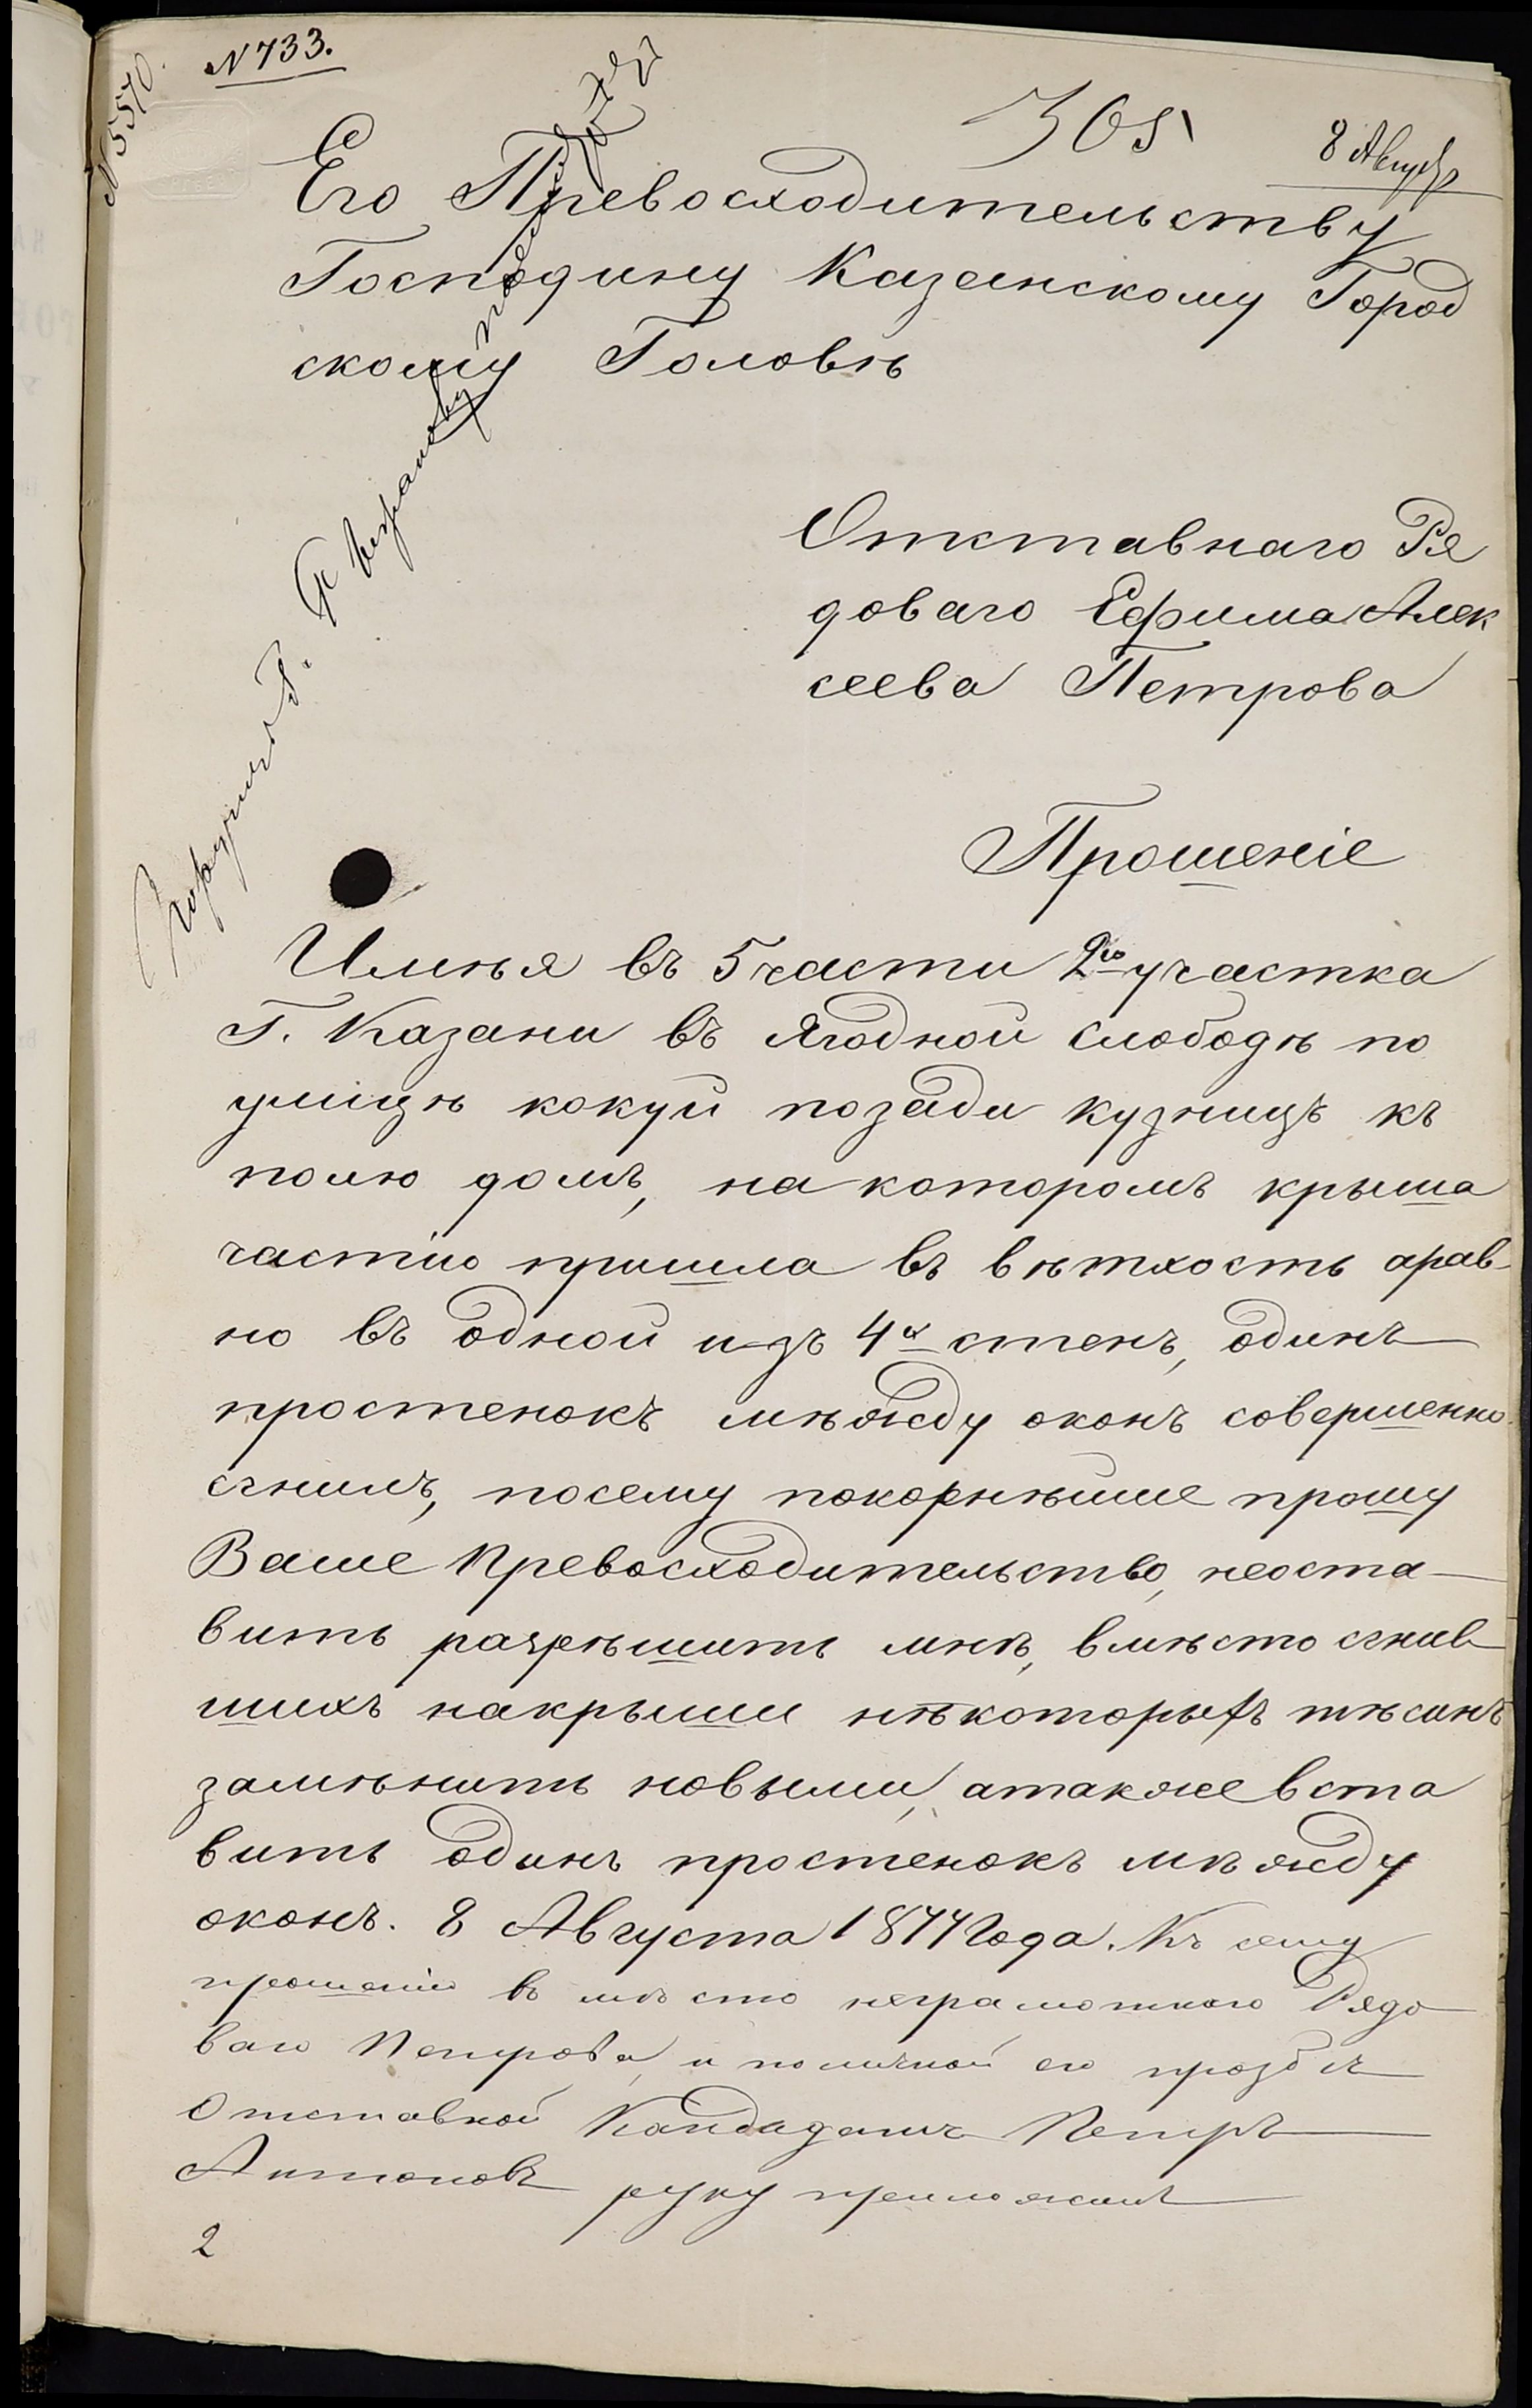 N 733.
N 5570.
305
8 Август
Его Превосходительству
Господину Казанскому Город
скому Головѣ
Отставнаго Ря
доваго Ефима Алек
сеева Петрова
Прошеніе
Имѣя въ 5 части 2го участка
Г. Казани въ Ягодной слободѣ по
улицѣ кокуй позади кузницъ къ
полю домъ, на которомъ крыша
частію пришла въ вѣтхость арав-
но въ одной изъ 4х стенъ, одинъ
простенокъ мѣжду оконъ совершенно
сгнилъ, посему покорнѣйше прошу
Ваше Превосходительство, неоста-
вить разрѣшить мнѣ, вмѣсто сгнив
шихъ накрыши нѣкоторыхъ тѣсинъ
замѣнить новыми, атакже вста
вить одинъ простенокъ мѣжду
оконъ. 8 Августа 1877 Года. Къ сему
прошенію въ мѣсто неграмотнаго Рядо
ваго Петрова, и поличной его прозбѣ
Отставной Кандидатъ Петръ
Антоновъ руку приложилъ
2